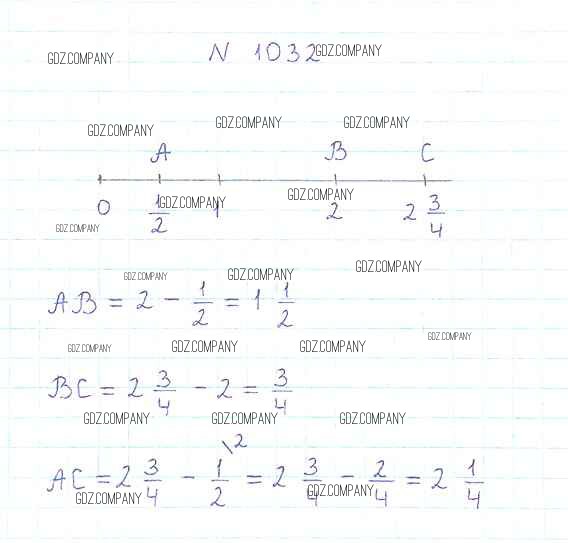 N 1032 GDZ.COMPANY
GDZ.COMPANY
GDZ.COMPANY GDZ.COMPANY GDZ.COMPANY
A B C
0 1/2 1 2 2 3/4
GDZ.COMPANY GDZ.COMPANY
GDZ.COMPANY
GDZ.COMPANY GDZ.COMPANY GDZ.COMPANY
AB = 2 - 1/2 = 1 1/2
GDZ.COMPANY GDZ.COMPANY GDZ.COMPANY GDZ.COMPANY
BC = 2 3/4 - 2 = 3/4
GDZ.COMPANY GDZ.COMPANY GDZ.COMPANY
\2
AC = 2 3/4 - 1/2 = 2 3/4 - 2/4 = 2 1/4
GDZ.COMPANY GDZ.COMPANY